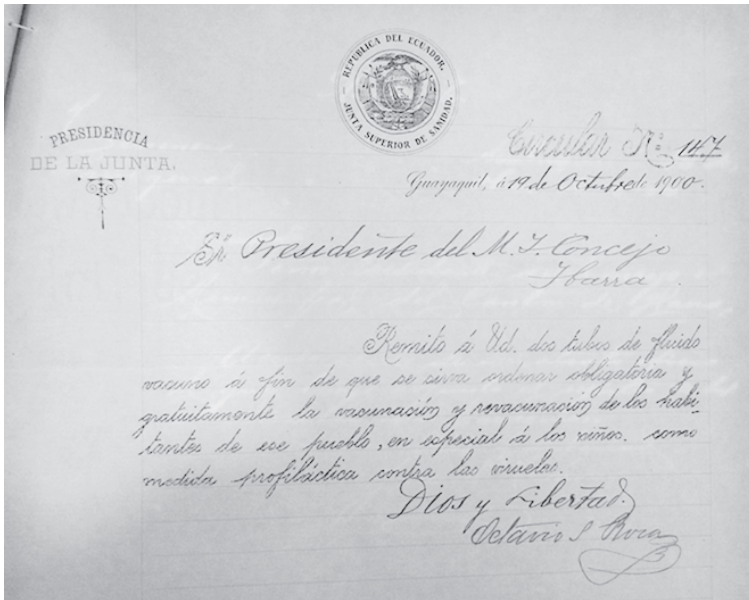 REPUBLICA DEL ECUADOR.
JUNTA SUPERIOR DE SANIDAD.
PRESIDENCIA
DE LA JUNTA.
Circular No. 147
Guayaquil, á 19 de Octubre de 1900.
Sr. Presidente del M. I. Concejo
Ibarra.
Remito á Ud. dos tubos de fluido
vacuno á fin de que se sirva ordenar obligatoria y
gratuitamente la vacunación y revacunación de los habi-
tantes de ese pueblo, en especial á los niños, como
medida profiláctica contra las viruelas.
Dios y Libertad.
Octavio S Roca